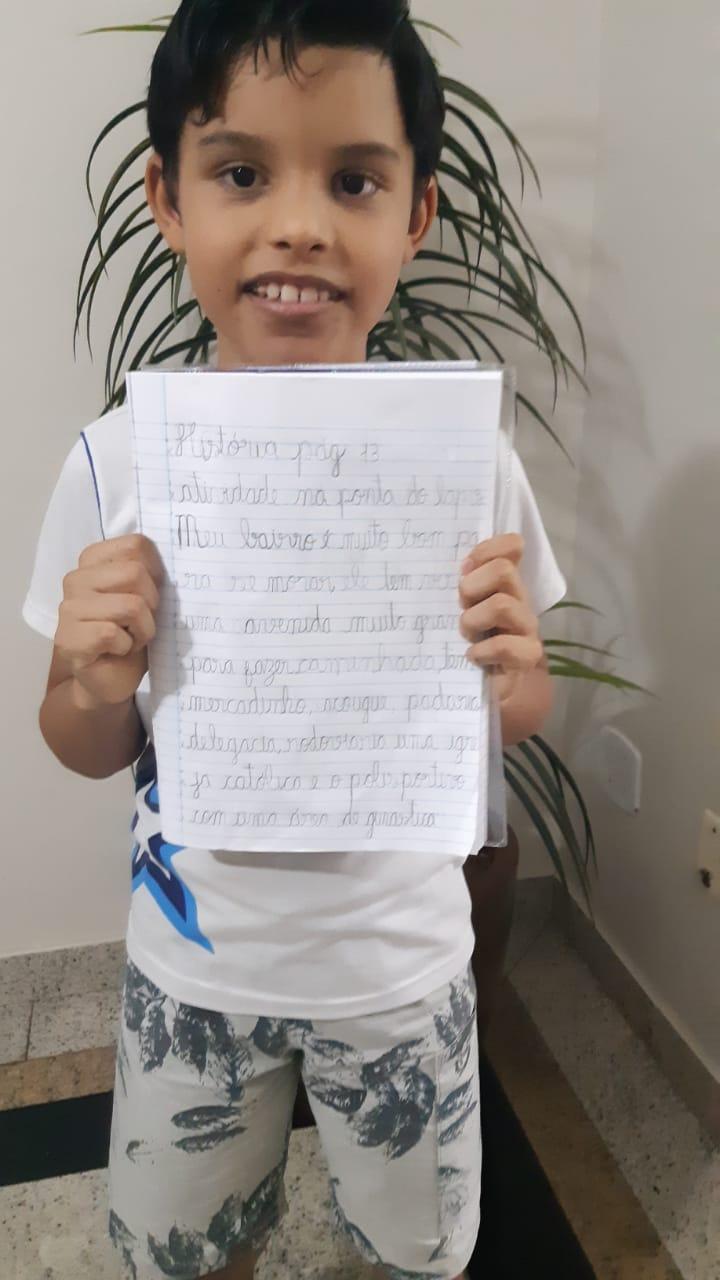 História pág 13
atividade na ponta do lápis
Meu bairro é muito bom pa
ra se morar ele tem
uma avenida muito gran
para fazer caminhada, tem
mercadinho, açougue, padaria
delegacia, rodoviaria uma igre
ja católica e o poliesportivo
com uma área de